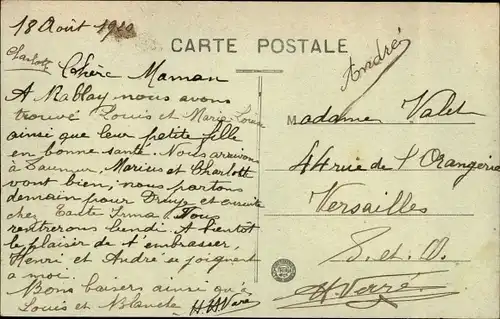 18 Août
CARTE POSTALE
André
Charlotte
Chère Maman
A Mablay nous avons
trouvé Louis et Marie Louise
ainsi que leur petite fille
en bonne santé. Nous arrivons
à Saumur, Marius et Charlott
vont bien, nous partons
demain pour et ensuite
chez Tante Irma. Nous
rentrerons lundi. A bientôt
le plaisir de t'embrasser,
Henri et André se joignent
à moi.
Bons baisers ainsi qu'à
Louis et Blanche
Madame Valet
44 rue de l'Orangerie
Versailles
S. et O.